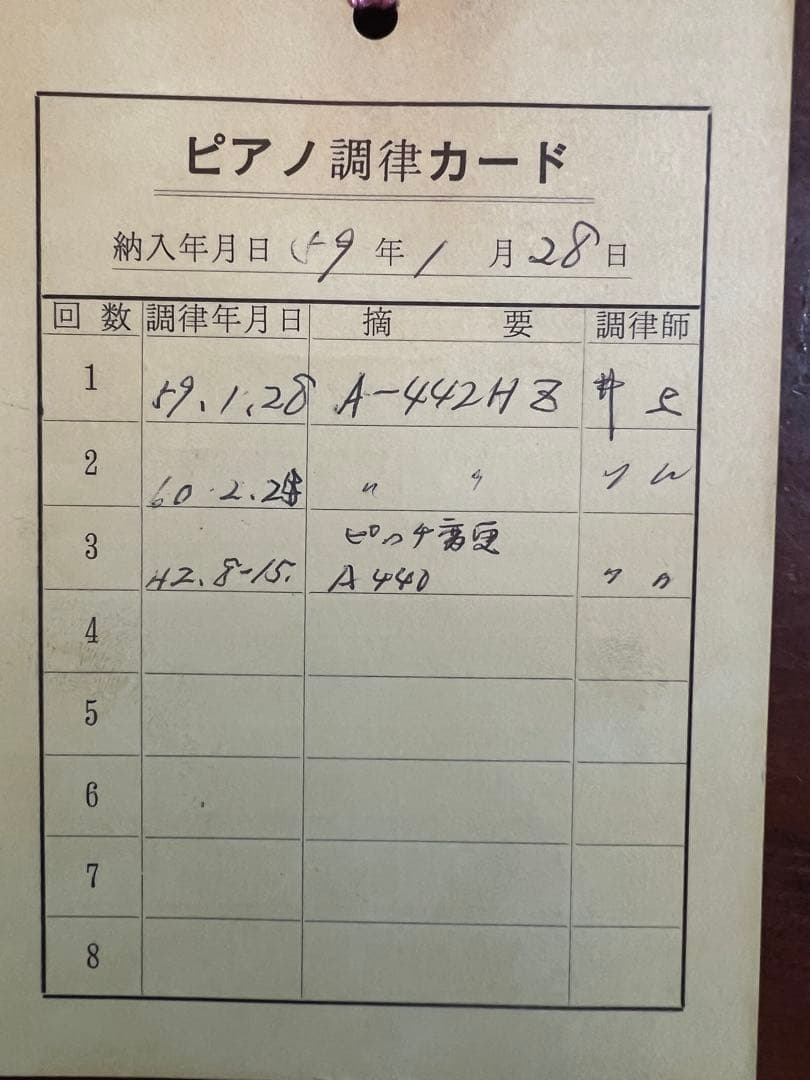 ピアノ調律カード
納入年月日 59年1月28日
回数 調律年月日 摘要 調律師
1 59.1.28 A-442HZ 井上
2 60.2.25 〃 〃 〃 〃
3 H2.8-15. ピッチ変更 A440 〃 〃
4
5
6
7
8